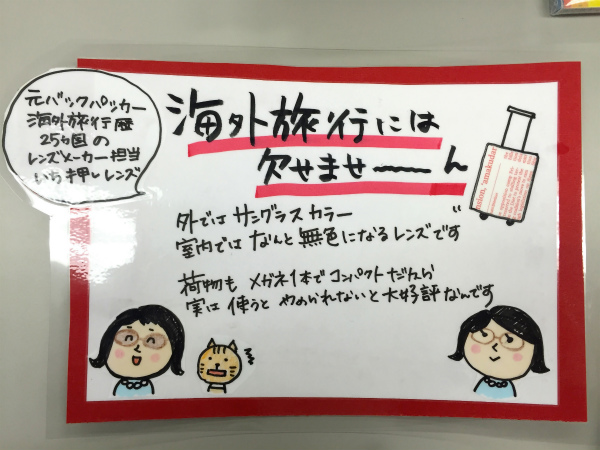 元バックパッカー
海外旅行歴
25ヵ国の
レンズメーカー担当
いち押しレンズ
海外旅行には
欠せませ〜〜ん
外ではサングラスカラー
室内ではなんと無色になるレンズです
荷物もメガネ1本でコンパクトだから
実は使うとやめられないと大好評なんです